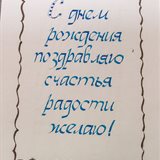 С днем
рождения
поздравляю
счастья
радости
желаю!